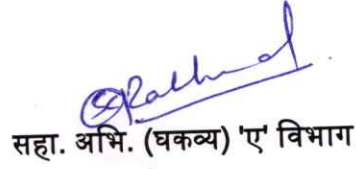 सहा. अभि. (घकव्य) 'ए' विभाग